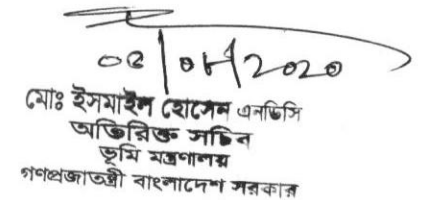 ০৫/০৮/2020
মোঃ ইসমাইল হোসেন এনডিসি
অতিরিক্ত সচিব
ভূমি মন্ত্রণালয়
গণপ্রজাতন্ত্রী বাংলাদেশ সরকার